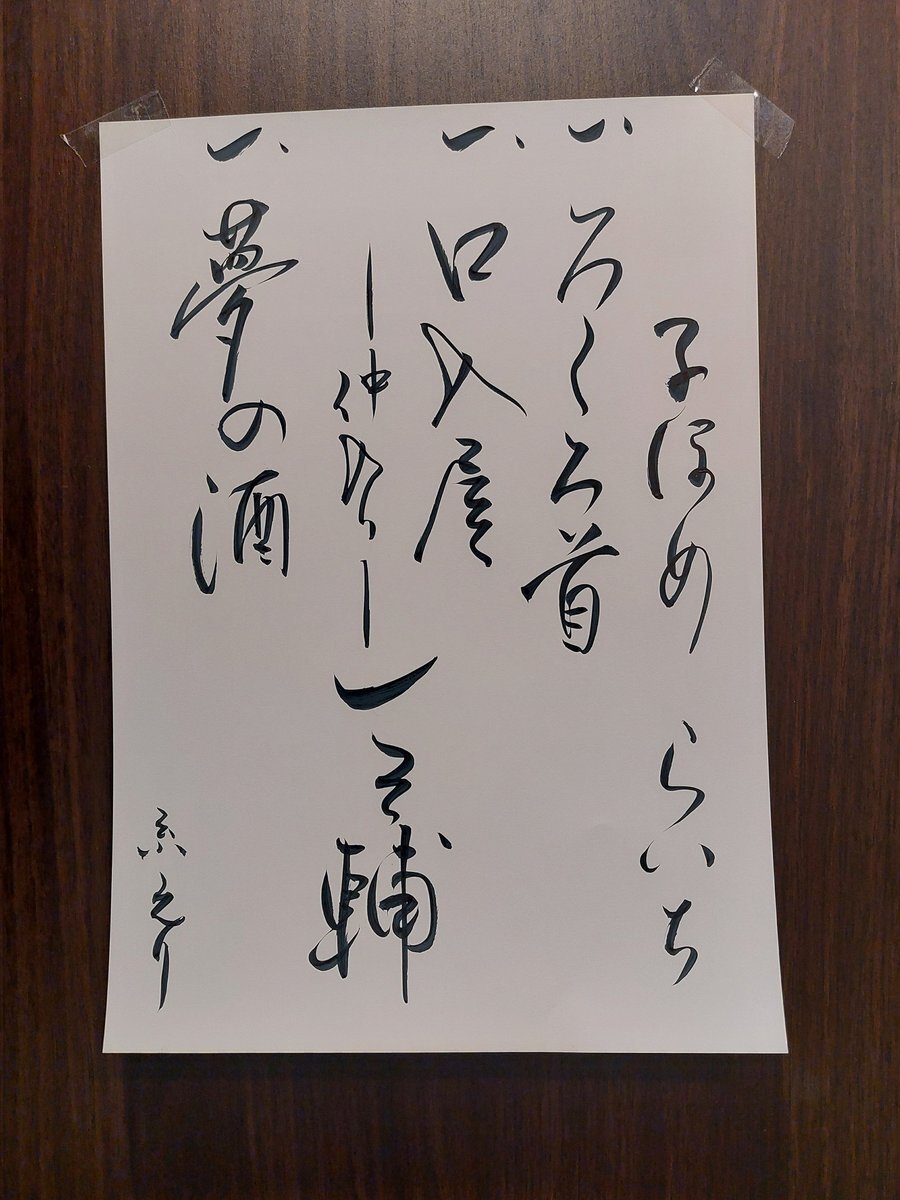 子ほめ　らいち
一、ろくろ首
一、口入屋
｜仲入り｜
一之輔
一、夢の酒